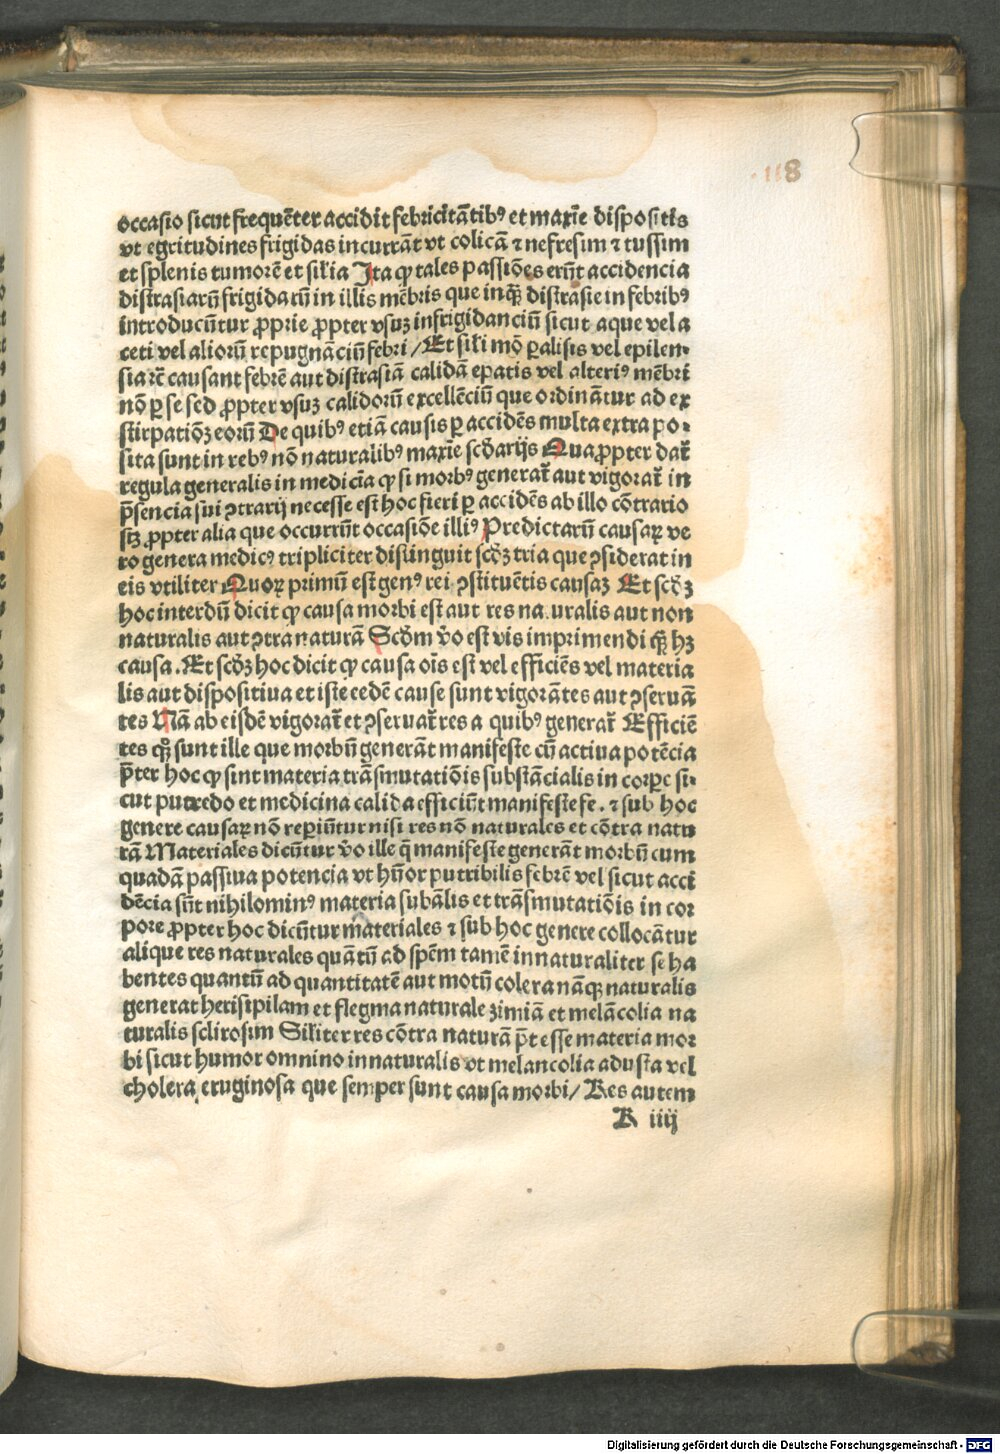 118
occasio sicut frequēter accidit febricitātibꝰ et maxīe dispositis
vt egritudines frigidas incurrāt vt colicā ⁊ nefresim ⁊ tussim
et splenis tumorē et sil'ia Ita ꝙ tales passiōes erūt accidencia
distrasiarū frigidarū in illis mēbris que inqͣꝫ distrasie in febribꝰ
introducūtur ꝓprie ꝓpter vsuꝫ infrigidanciū sicut aque vel a
ceti vel aliorū repugnāciū febri / Et sil'i mō ꝑalisis vel epilen-
sia rē causant febrē aut distrasiā calidā epatis vel alteriꝰ mēbri
nō ꝑ se sed ꝓpter vsuꝫ calidorū excellēciū que ordināntur ad ex
stirpatiōꝫ eorū De quibꝰ etiā causis ꝑ accidēs multa extra po-
sita sunt in rebꝰ nō naturalibꝰ maxīe scd̄arijs Quaꝓpter dat̄
regula generalis in medicīa ꝙ si morbꝰ generat̄ aut vigorat̄ in
p̄sencia sui ꝯtrarij necesse est hoc fieri ꝑ accidēs ab illo cōtrario
sꝫ ꝓpter alia que occurrūt occasiōe illiꝰ Predictarū causaꝝ ve
ro genera medicꝰ tripliciter distinguit scd̄ꝫ tria que ꝯsiderat in
eis vtiliter Quoꝝ primū est genꝰ rei ꝯstituētis causaꝫ Et scd̄ꝫ
hoc interdū dicit ꝙ causa morbi est aut res na.uralis aut non
naturalis aut ꝯtra naturā Scd̄m v̄o est vis imprimendi qͣꝫ hꝫ
causa . Et scd̄ꝫ hoc dicit ꝙ causa oīs est vel efficiēs vel materia
lis aut dispositiua et iste eedē cause sunt vigorātes aut ꝯseruā
tes Nā ab eisdē vigorat̄ et ꝯseruat̄ res a quibꝰ generat̄ Efficiē
tes qͥꝫ sunt ille que morbū generāt manifeste cū actiua potēcia
p̄ter hoc ꝙ sint materia trāsmutatiōis substācialis in corpe si-
cut putredo et medicina calida efficiūt manifeste fe . ⁊ sub hoc
genere causaꝝ nō reperiūtur nisi res nō naturales et cōtra natu
rā Materiales dicūtur v̄o ille q̄ manifeste generāt morbū cum
quadā passiua potencia vt hūor putribilis febrē vel sicut acci
dēcia sūt nihilominꝰ materia subālis et trāsmutatiōis in cor
pore ꝓpter hoc dicūtur materiales ⁊ sub hoc genere collocātur
alique res naturales quātū ad spēm tamē innaturaliter se ha
bentes quantū ad quantitatē aut motū colera nāqꝫ naturalis
generat herisipilam et flegma naturale zimiā et melācolia na
turalis sclirosim Sil'iter res cōtra naturā p̄t esse materia mor
bi sicut humor omnino innaturalis vt melancolia adusta vel
cholera eruginosa que semper sunt causa morbi / Res autem
K iiij
Digitalisierung gefördert durch die Deutsche Forschungsgemeinschaft - DFG